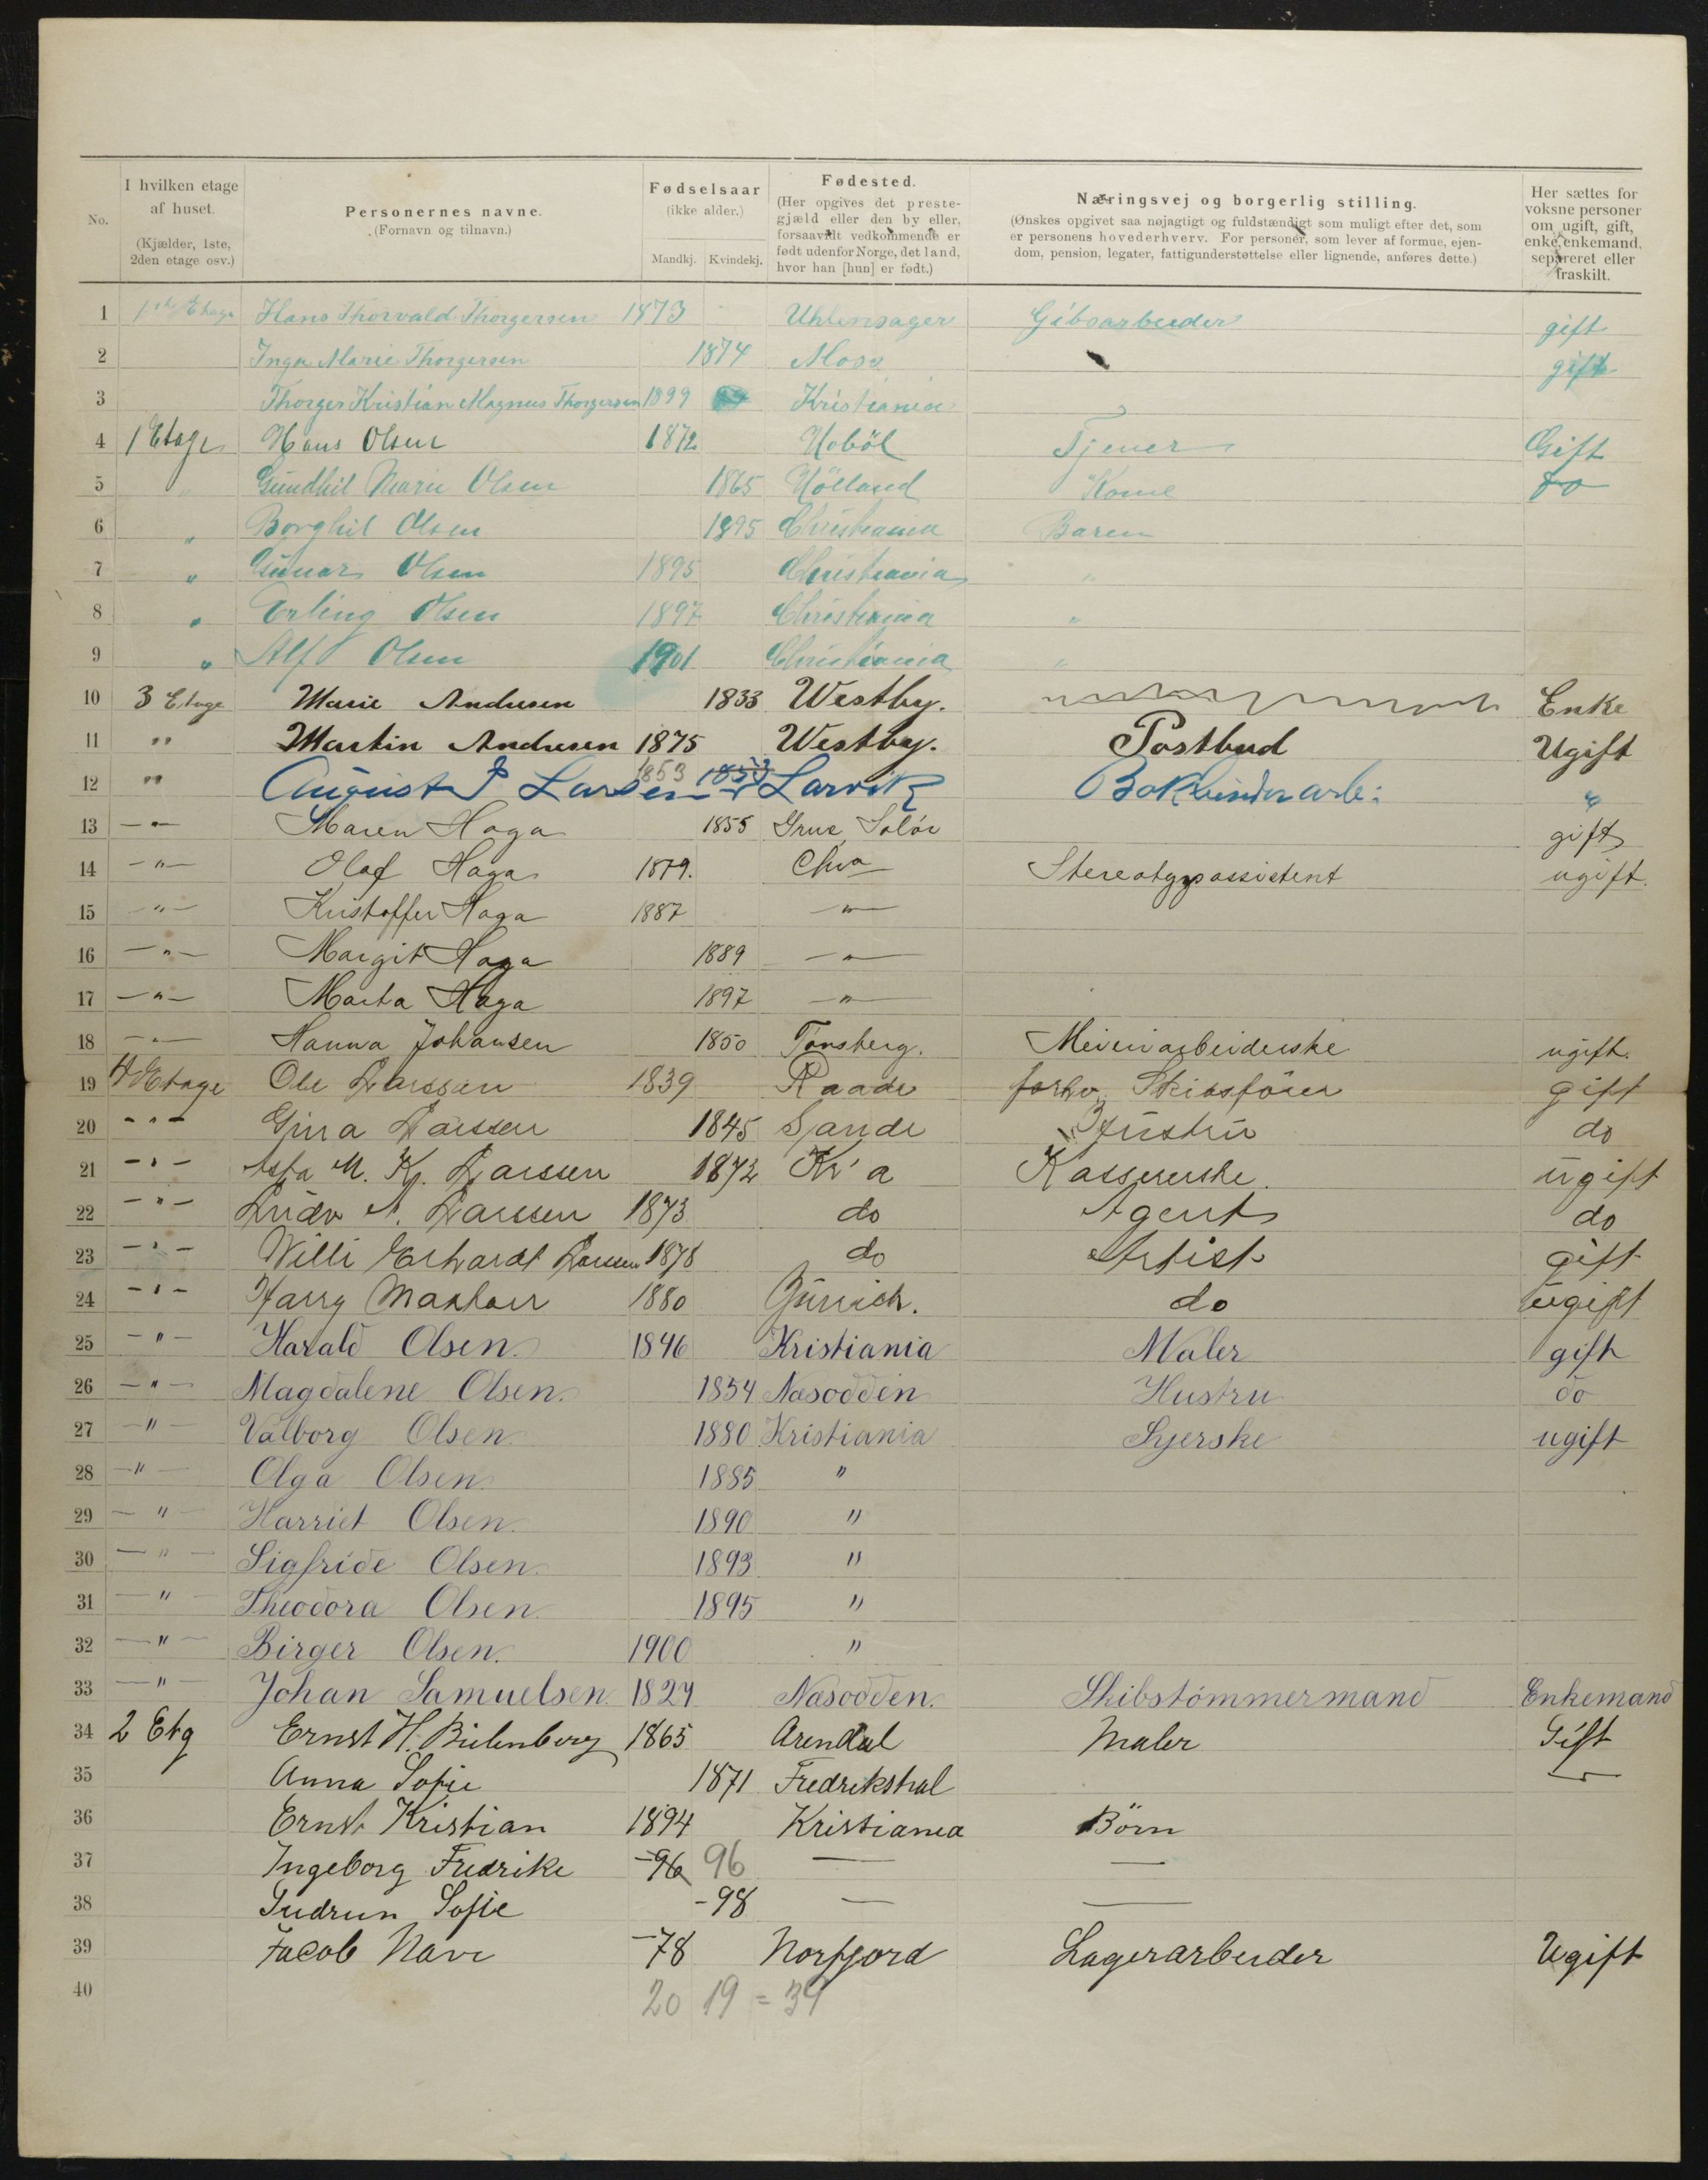 No.
I hvilken etage af huset. (Kjælder, 1ste, 2den etage osv.)
Personernes navne. (Fornavn og tilnavn.)
Fødselsaar (ikke alder.) Mandkj. Kvindekj.
Fødested. (Her opgives det prestegjæld eller den by eller, forsaavidt vedkommende er født udenfor Norge, det land, hvor han [hun] er født.)
Næringsvej og borgerlig stilling. (Ønskes opgivet saa nøjagtigt og fuldstændigt som muligt efter det, som er personens hovederhverv. For personer, som lever af formue, ejendom, pension, legater, fattigunderstøttelse eller lignende, anføres dette.)
Her sættes for voksne personer om ugift, gift, enke, enkemand, separeret eller fraskilt.
1 1ste Etage Hans Thorvald Thorgersen 1873 Uhlensager Gibsarbeider gift
2 Inga Marie Thorgersen 1874 Moss gift
3 Thorger Kristian Magnus Thorgersen 1899 Kristiania
4 1 Etage Hans Olsen 1872 Hoböl Tjener Gift
5 " Gundhil Marie Olsen 1865 Höland Kone do
6 " Borghil Olsen 1895 Christiania Baren
7 " Gunar Olsen 1895 Christiania "
8 " Erling Olsen 1897 Christiania "
9 " Alf Olsen 1901 Christiania "
10 3 Etage Marie Andresen 1833 Westby. Enke
11 " Martin Andresen 1875 Westby. Postbud Ugift
12 " August P Larsen 1853 1853 Larvik Bokbinderarb: "
13 — " — Maren Haga 1855 Grue, Solör gift
14 — " — Olaf Haga 1879. Chra Stereotypassistent ugift.
15 — " — Kristoffer Haga 1887 — " —
16 — " — Margit Haga 1889 — " —
17 — " — Marta Haga 1897 — " —
18 — " — Hanna Johansen 1850 Tønsberg. Meieriarbeiderske ugift.
19 4 Etage Ole Larssen 1839 Raade forhv. Skibsförer gift
20 — " — Gina Larssen 1845 Sande Hustru do
21 — " — Asta M. K. Larssen 1872 Kr'a Kassererske. ugift
22 — " — Ludv A. Larssen 1873 do Agent do
23 — " — Willi Erhardt Larssen 1878 do Artist gift
24 — " — Harry 1880 do ugift
25 — " — Harald Olsen. 1846 Kristiania Maler gift
26 — " — Magdalene Olsen. 1854 Næsodden Hustru do
27 — " — Valborg Olsen 1880 Kristiania Syerske ugift
28 — " — Olga Olsen. 1885 "
29 — " — Harriet Olsen. 1890 "
30 — " — Sigfride Olsen. 1893 "
31 — " — Theodora Olsen 1895 "
32 — " — Birger Olsen. 1900 "
33 — " — Johan Samuelsen. 1824 Næsodden. Skibstömmermand Enkemand
34 2 Etg Ernst H. Bielenberg 1865 Arendal Maler Gift
35 Anna Sofie 1871 Fredrikshal —
36 Ernst Kristian 1894 Kristiania Börn
37 Ingeborg Fredrike -96 96 — —
38 Gudrun Sofie -98 — —
39 Jacob Nave -78 Norfjord Lagerarbeider Ugift
40 20 19 = 39